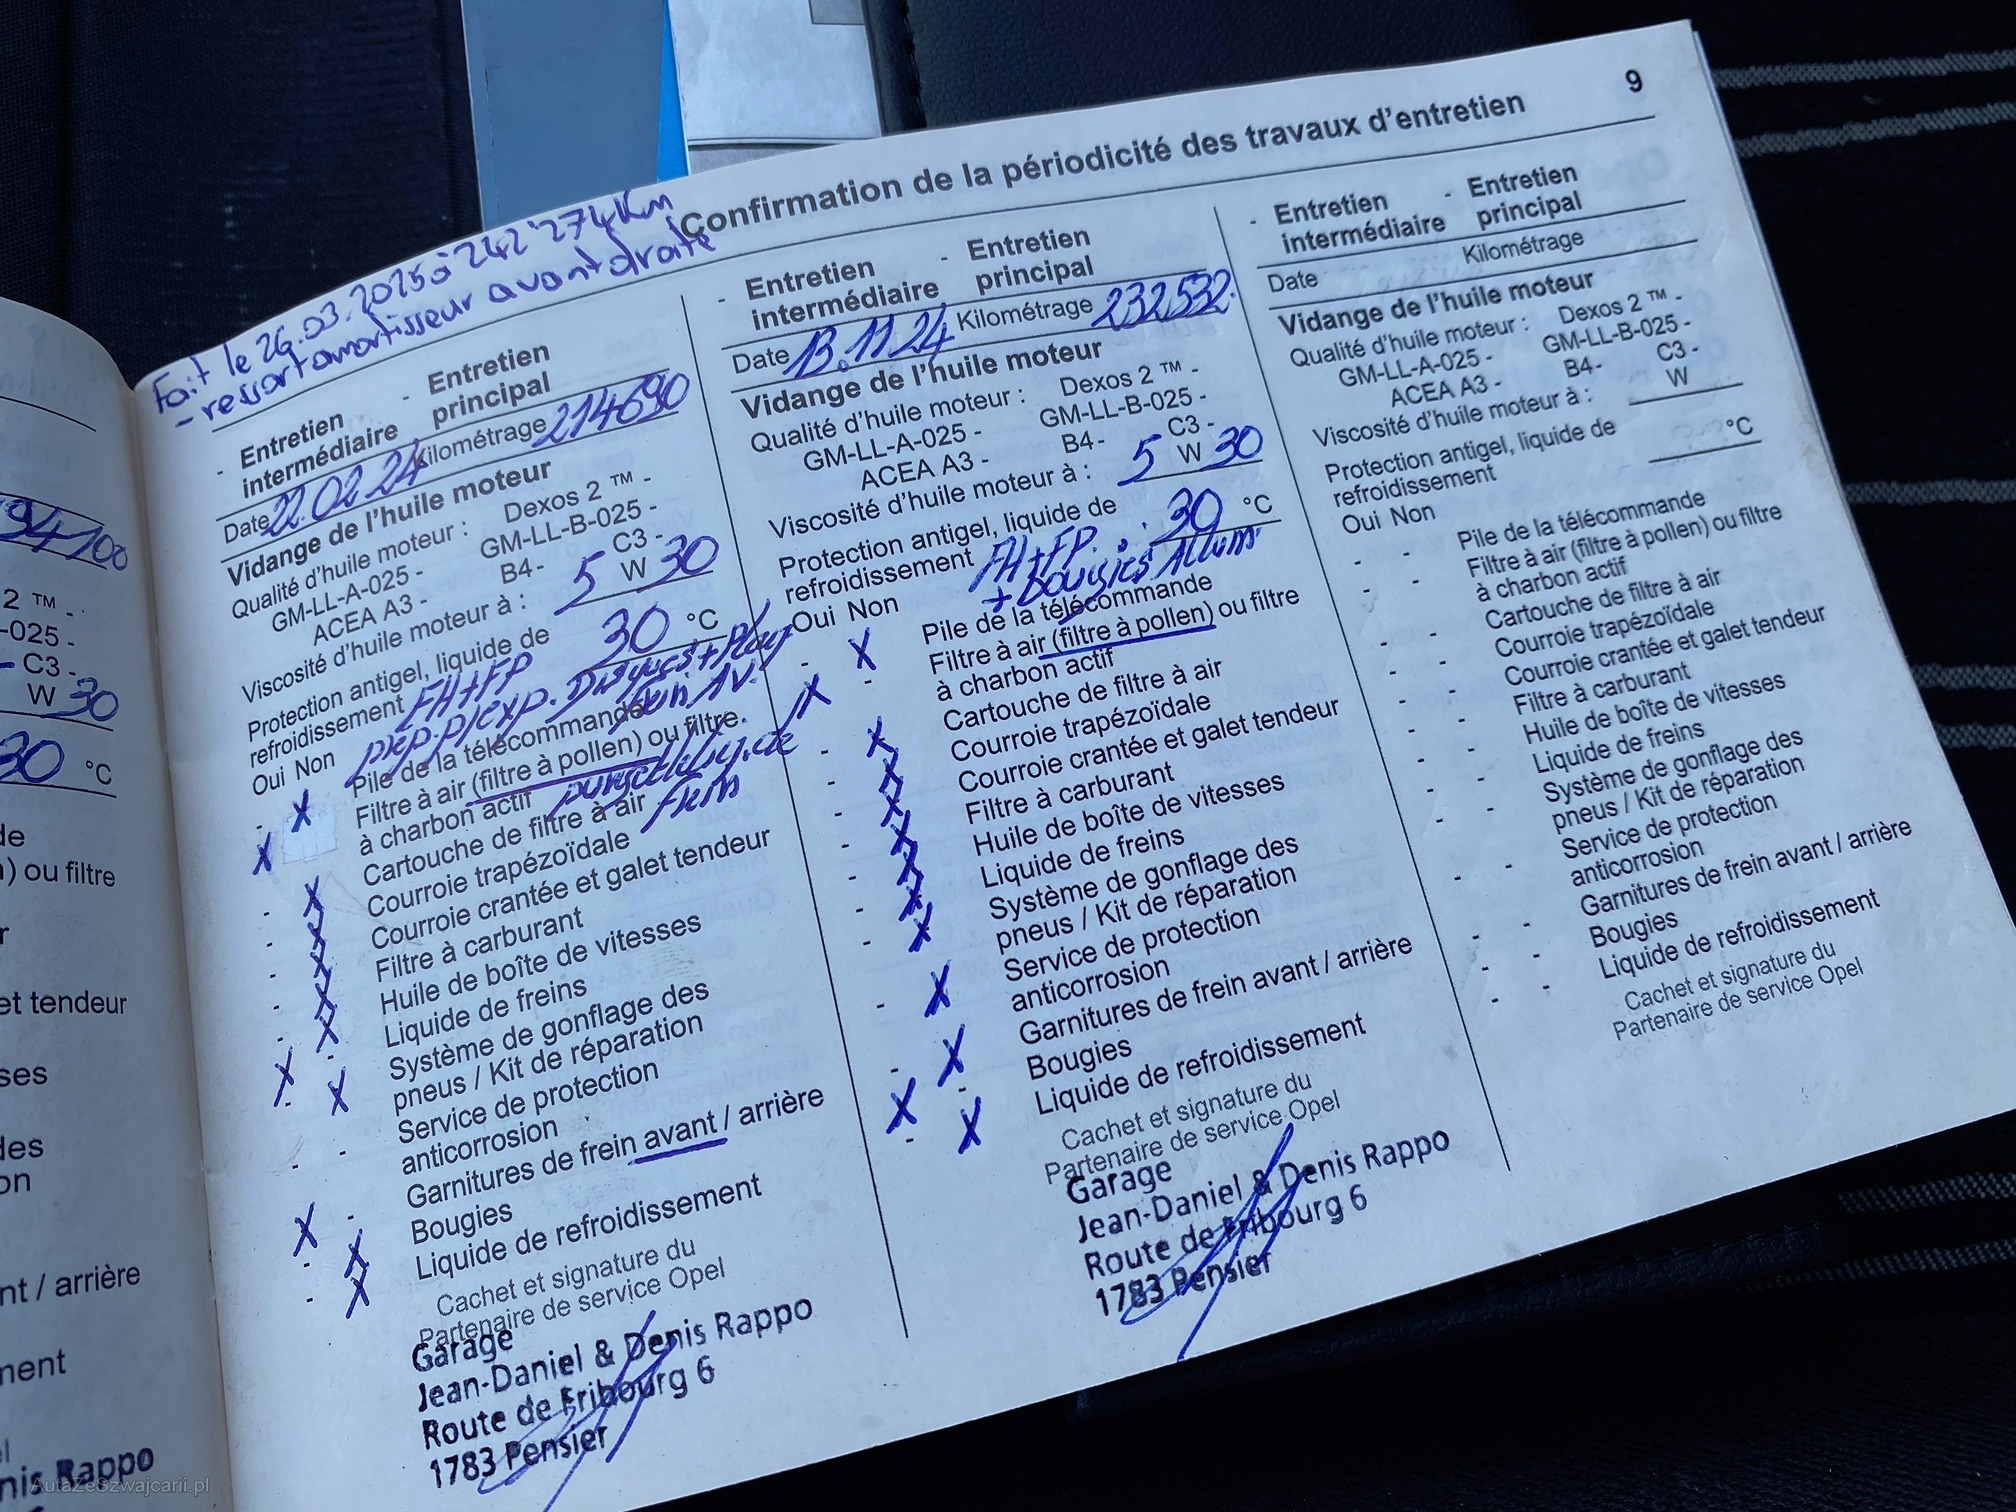 9
Confirmation de la périodicité des travaux d'entretien
Fait le 26.03.2025 à 242'274 Km
- ressort amortisseur avant droite
- Entretien intermédiaire - Entretien principal
Date 22.02.24 Kilométrage 214690
Vidange de l'huile moteur
Qualité d'huile moteur : Dexos 2 ™ -
GM-LL-A-025 - GM-LL-B-025 -
ACEA A3 - B4- C3 -
Viscosité d'huile moteur à : 5 W 30
Protection antigel, liquide de
refroidissement 30 °C
FH+FP
Oui Non
Pile de la télécommande
Filtre à air (filtre à pollen) ou filtre
à charbon actif
Cartouche de filtre à air
Courroie trapézoïdale
Courroie crantée et galet tendeur
Filtre à carburant
Huile de boîte de vitesses
Liquide de freins
Système de gonflage des
pneus / Kit de réparation
Service de protection
anticorrosion
Garnitures de frein avant / arrière
Bougies
Liquide de refroidissement
Cachet et signature du
Partenaire de service Opel
Garage
Jean-Daniel & Denis Rappo
Route de Fribourg 6
1783 Pensier
- Entretien intermédiaire - Entretien principal
Date 13.11.24 Kilométrage 232532
Vidange de l'huile moteur
Qualité d'huile moteur : Dexos 2 ™ -
GM-LL-A-025 - GM-LL-B-025 -
ACEA A3 - B4- C3 -
Viscosité d'huile moteur à : 5 W 30
Protection antigel, liquide de
refroidissement 30 °C
FH+FP
+ Bougies Allum
Oui Non
Pile de la télécommande
Filtre à air (filtre à pollen) ou filtre
à charbon actif
Cartouche de filtre à air
Courroie trapézoïdale
Courroie crantée et galet tendeur
Filtre à carburant
Huile de boîte de vitesses
Liquide de freins
Système de gonflage des
pneus / Kit de réparation
Service de protection
anticorrosion
Garnitures de frein avant / arrière
Bougies
Liquide de refroidissement
Cachet et signature du
Partenaire de service Opel
Garage
Jean-Daniel & Denis Rappo
Route de Fribourg 6
1783 Pensier
- Entretien intermédiaire - Entretien principal
Date Kilométrage
Vidange de l'huile moteur
Qualité d'huile moteur : Dexos 2 ™ -
GM-LL-A-025 - GM-LL-B-025 -
ACEA A3 - B4- C3 -
Viscosité d'huile moteur à : W
Protection antigel, liquide de
refroidissement °C
Oui Non
Pile de la télécommande
Filtre à air (filtre à pollen) ou filtre
à charbon actif
Cartouche de filtre à air
Courroie trapézoïdale
Courroie crantée et galet tendeur
Filtre à carburant
Huile de boîte de vitesses
Liquide de freins
Système de gonflage des
pneus / Kit de réparation
Service de protection
anticorrosion
Garnitures de frein avant / arrière
Bougies
Liquide de refroidissement
Cachet et signature du
Partenaire de service Opel
2 ™ -
-025 -
C3 -
W 30
30 °C
) ou filtre
et tendeur
nt / arrière
nis Rappo
AutaZeSzwajcarii.pl